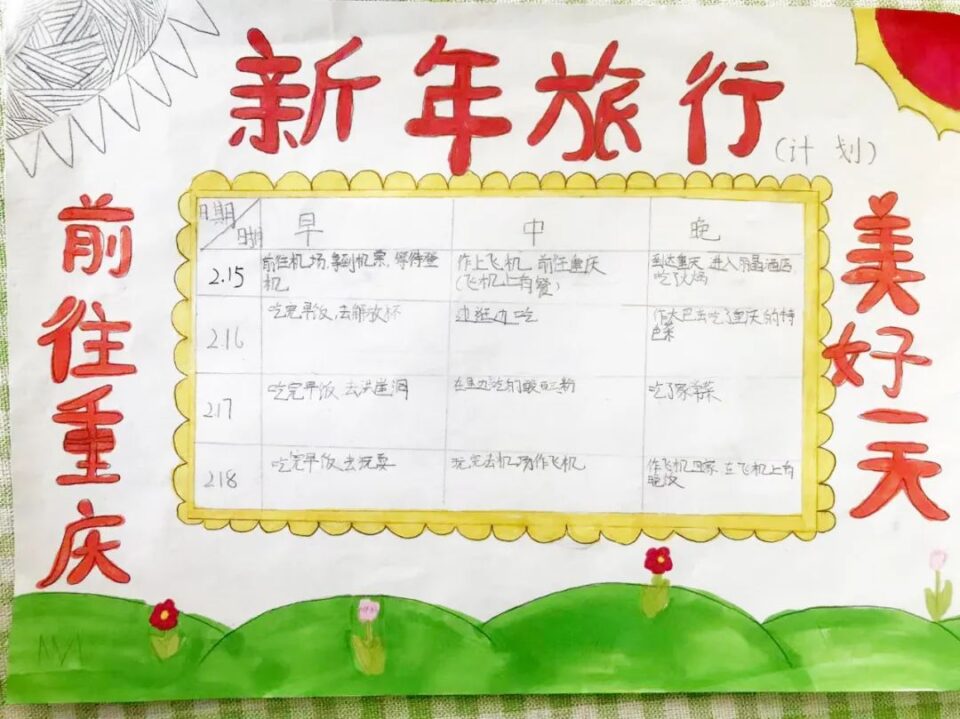 新年旅行
(计划)
前往重庆
美好一天
日期
时期
早
中
晚
2.15
前往机场,拿到机票,等待登机
作上飞机,前往重庆
(飞机上有餐)
到达重庆,进入酒店
吃了火锅
2.16
吃完早饭,去解放杯
边逛边吃
作大巴去吃了重庆的特
色菜
217
吃完早饭,去洪崖洞
吃了家常菜
218
吃完早饭,去玩耍
玩完去机场作飞机
作飞机回家,在飞机上有
晚饭